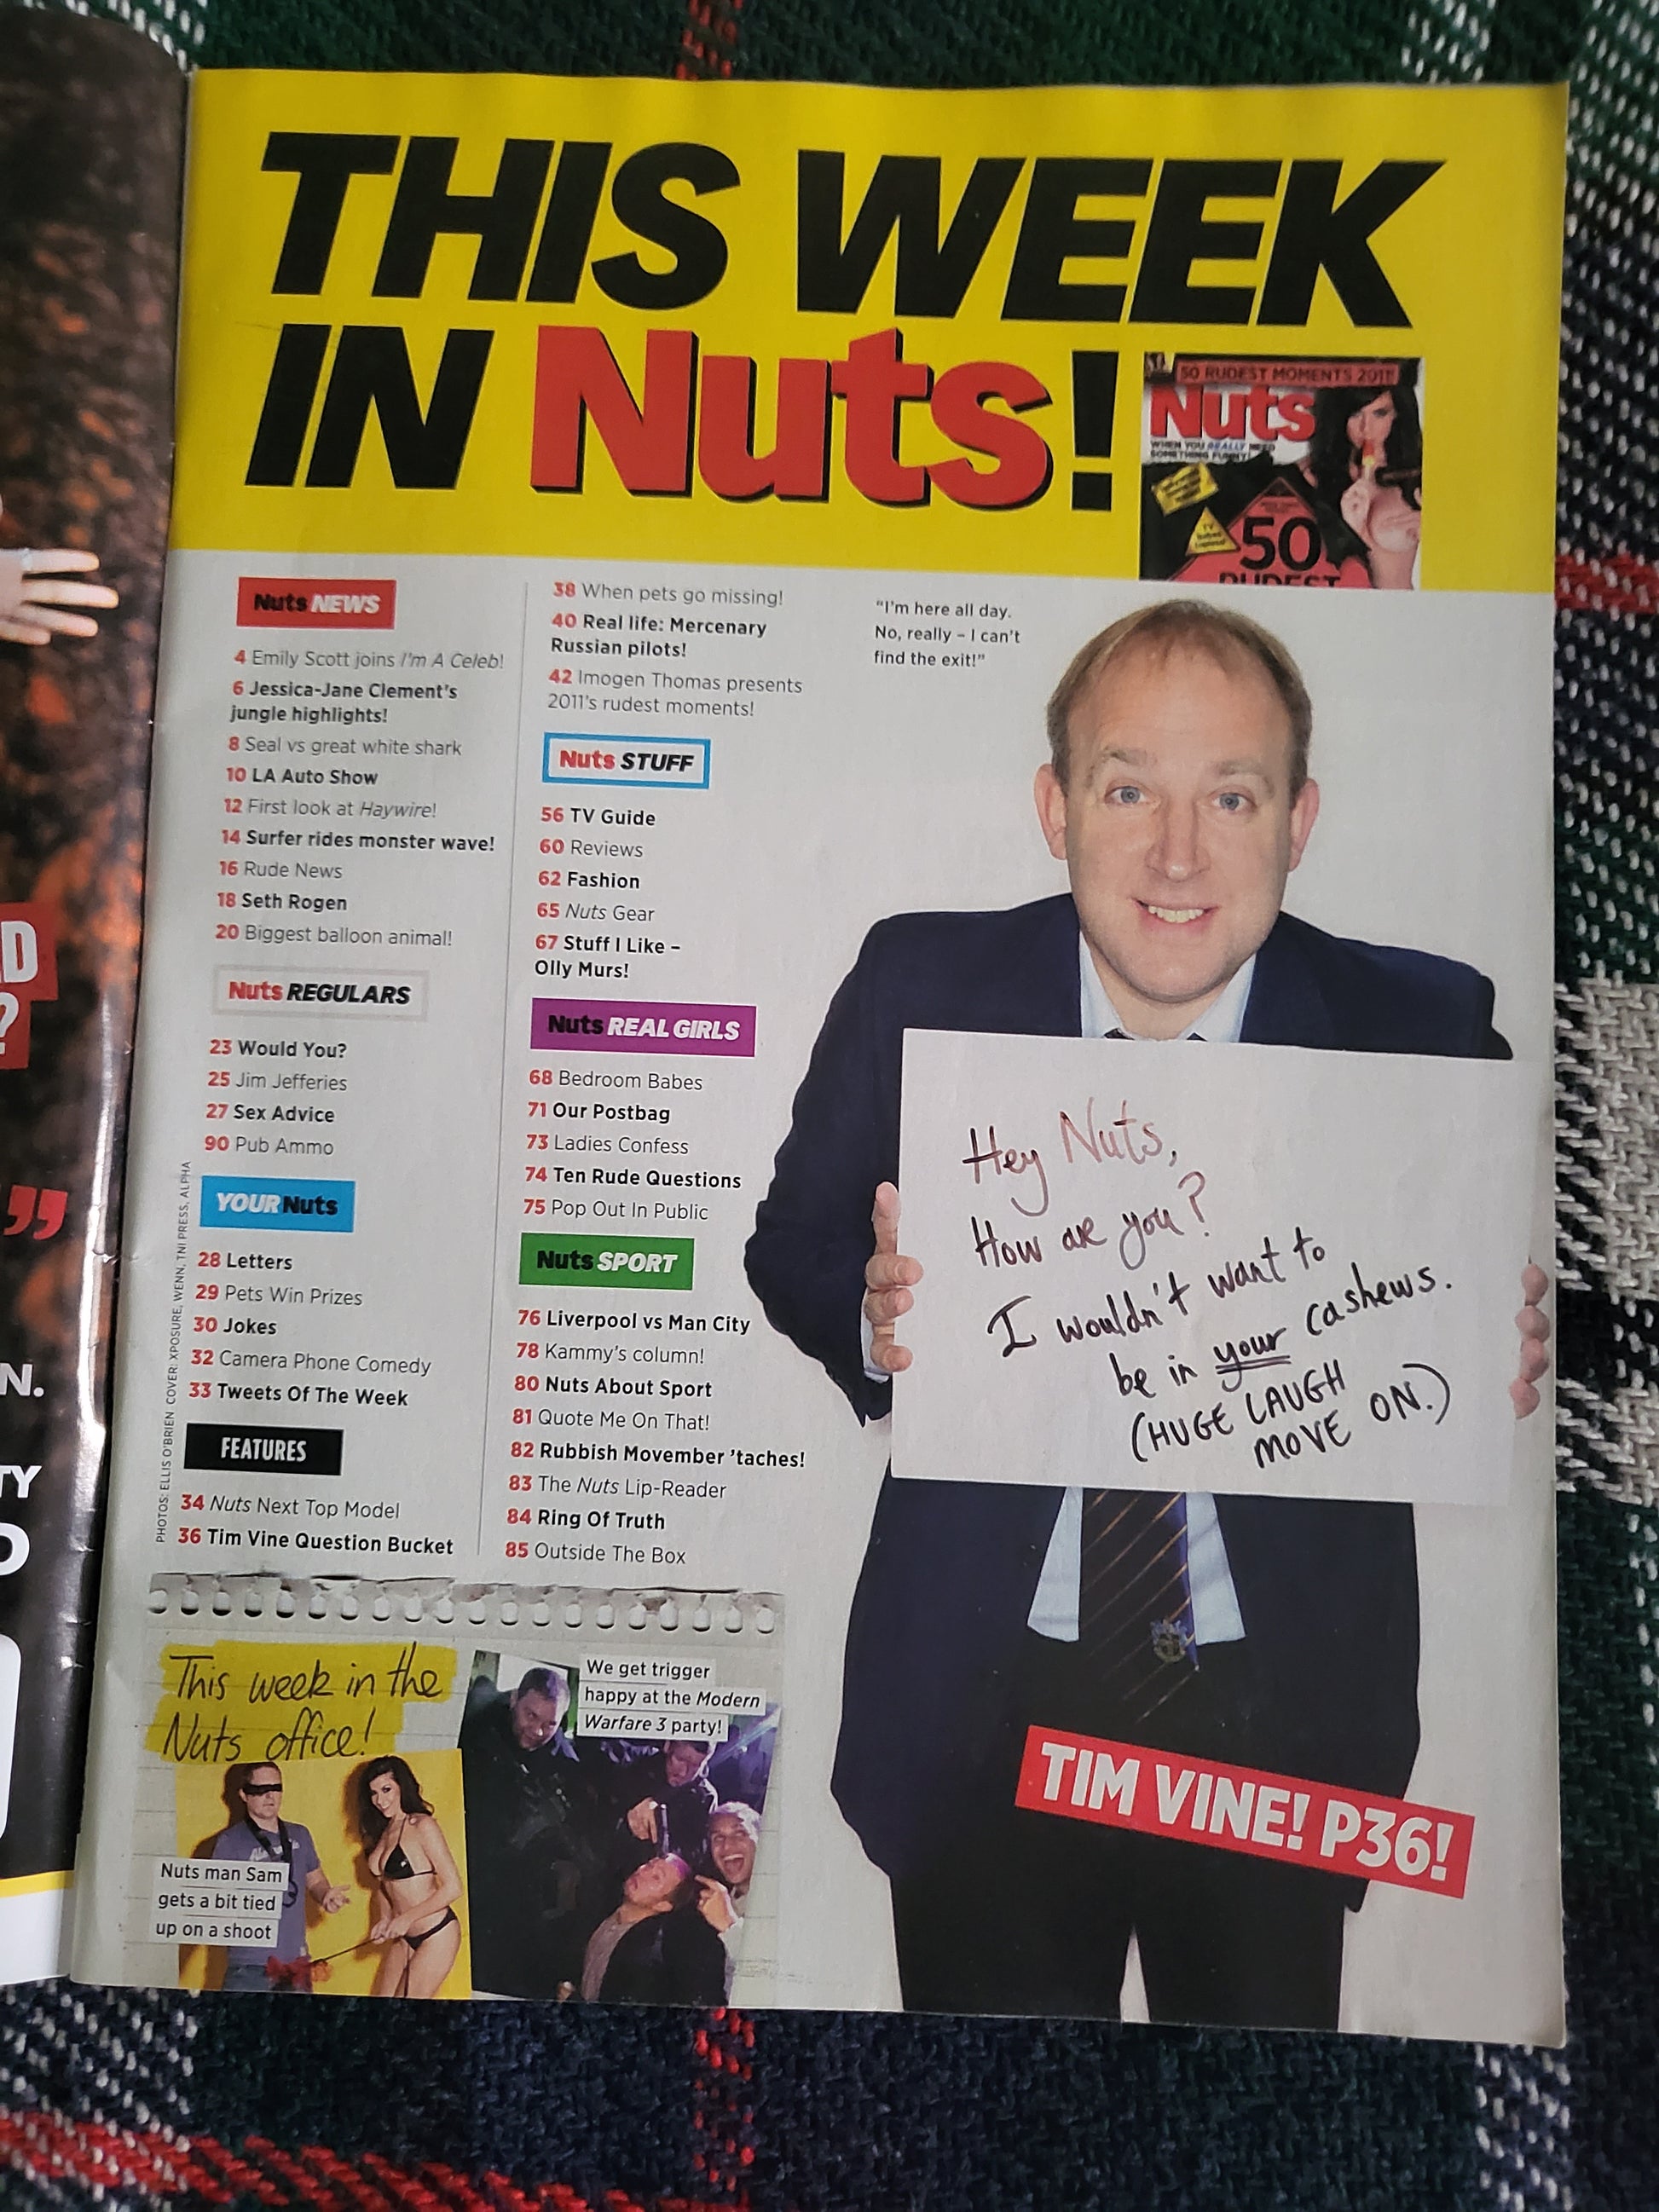 THIS WEEK
IN Nuts!
50 RUDEST MOMENTS 2011!
Nuts
WHEN YOU REALLY NEED
SOMETHING FUNNY!
50
RUDEST
Nuts NEWS
4 Emily Scott joins I'm A Celeb!
6 Jessica-Jane Clement's
jungle highlights!
8 Seal vs great white shark
10 LA Auto Show
12 First look at Haywire!
14 Surfer rides monster wave!
16 Rude News
18 Seth Rogen
20 Biggest balloon animal!
Nuts REGULARS
23 Would You?
25 Jim Jefferies
27 Sex Advice
90 Pub Ammo
YOUR Nuts
28 Letters
29 Pets Win Prizes
30 Jokes
32 Camera Phone Comedy
33 Tweets Of The Week
FEATURES
34 Nuts Next Top Model
36 Tim Vine Question Bucket
38 When pets go missing!
40 Real life: Mercenary
Russian pilots!
42 Imogen Thomas presents
2011's rudest moments!
Nuts STUFF
56 TV Guide
60 Reviews
62 Fashion
65 Nuts Gear
67 Stuff I Like –
Olly Murs!
Nuts REAL GIRLS
68 Bedroom Babes
71 Our Postbag
73 Ladies Confess
74 Ten Rude Questions
75 Pop Out In Public
Nuts SPORT
76 Liverpool vs Man City
78 Kammy's column!
80 Nuts About Sport
81 Quote Me On That!
82 Rubbish Movember 'taches!
83 The Nuts Lip-Reader
84 Ring Of Truth
85 Outside The Box
PHOTOS: ELLIS O'BRIEN COVER: XPOSURE, WENN, TNI PRESS, ALPHA
"I'm here all day.
No, really – I can't
find the exit!"
Hey Nuts,
How are you?
I wouldn't want to
be in your cashews.
(HUGE LAUGH
MOVE ON.)
TIM VINE! P36!
This week in the
Nuts office!
Nuts man Sam
gets a bit tied
up on a shoot
We get trigger
happy at the Modern
Warfare 3 party!
D
?
"
N.
TY